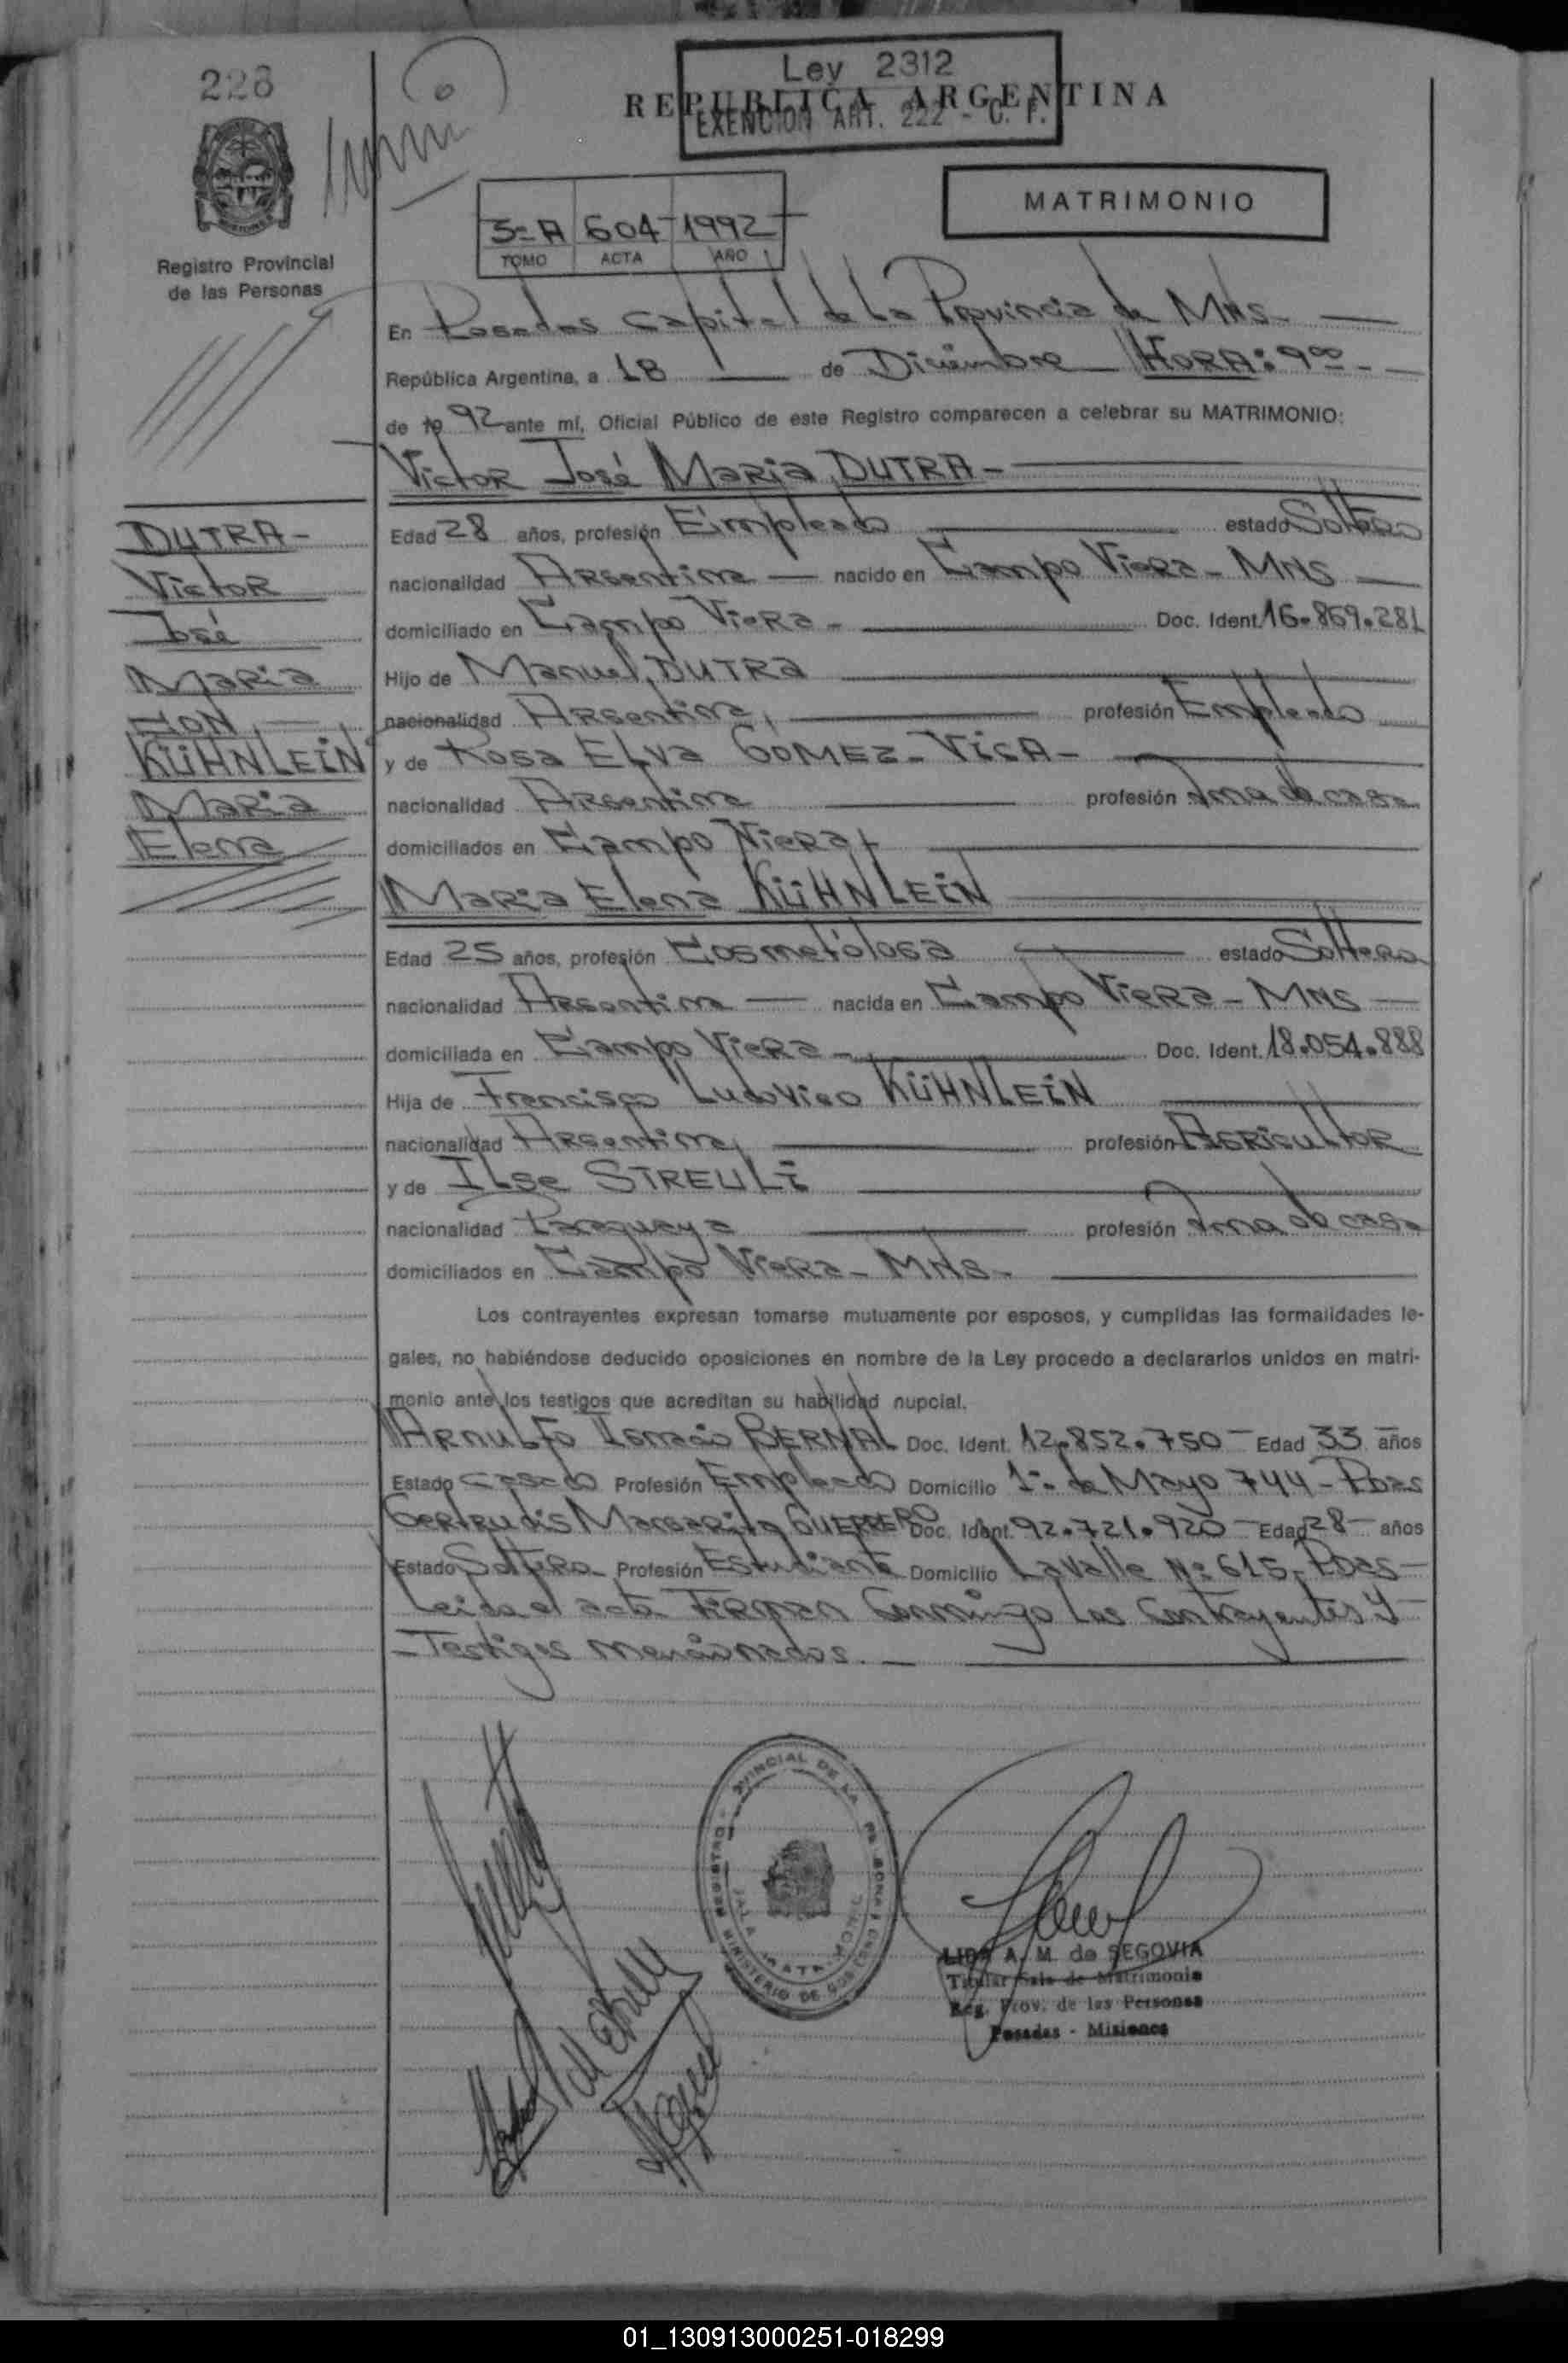 228
Registro Provincial
de las Personas
Ley 2312
REPUBLICA ARGENTINA
EXENCION ART. 222 - C. F.
MATRIMONIO
3=A 604 1992
TOMO ACTA AÑO
En Posadas Capital de La Provincia de MNS.
República Argentina, a 18 de Diciembre HORA: 9oo
de 19 92 ante mí, Oficial Público de este Registro comparecen a celebrar su MATRIMONIO:
Victor José Maria, DUTRA-
DUTRA-
Victor
José
Maria
CON
KÜHNLEIN
Maria
Elena
Edad 28 años, profesión Empleado estado Soltero
nacionalidad Argentina nacido en Campo Viera - MNS
domiciliado en Campo Viera - Doc. Ident. 16.869.281
Hijo de Manuel, DUTRA
nacionalidad Argentina, profesión Empleado
y de Rosa Elva GOMEZ-VIGA-
nacionalidad Argentina profesión Ama de casa
domiciliados en Campo Viera
Maria Elena KÜHNLEIN
Edad 25 años, profesión Cosmetóloga estado Soltera
nacionalidad Argentina nacida en Campo Viera - MNS
domiciliada en Campo Viera - Doc. Ident. 18.054.888
Hija de Francisco Ludovico KÜHNLEIN
nacionalidad Argentina, profesión Agricultor
y de Ilse STREULI
nacionalidad Paraguaya profesión Ama de casa
domiciliados en Campo Viera - MNS -
Los contrayentes expresan tomarse mutuamente por esposos, y cumplidas las formalidades le-
gales, no habiéndose deducido oposiciones en nombre de la Ley procedo a declararlos unidos en matri-
monio ante los testigos que acreditan su habilidad nupcial.
Arnulfo Ignacio BERNAL Doc. Ident. 12.852.750 Edad 33 años
Estado Casado Profesión Empleado Domicilio 1= de Mayo 744 - Pdas
Gertrudis Margarita GUERRERO Doc. Ident. 92.721.920 Edad 28 años
Estado Soltera Profesión Estudiante Domicilio Lavalle Nº 615, Pdas
Leida el acta Firman Conmingo Los Contrayentes y
- Testigos mencionados. -
LIDA A. M. de SEGOVIA
Titular Sala de Matrimonio
Reg. Prov. de las Personas
Posadas - Misiones
01_130913000251-018299